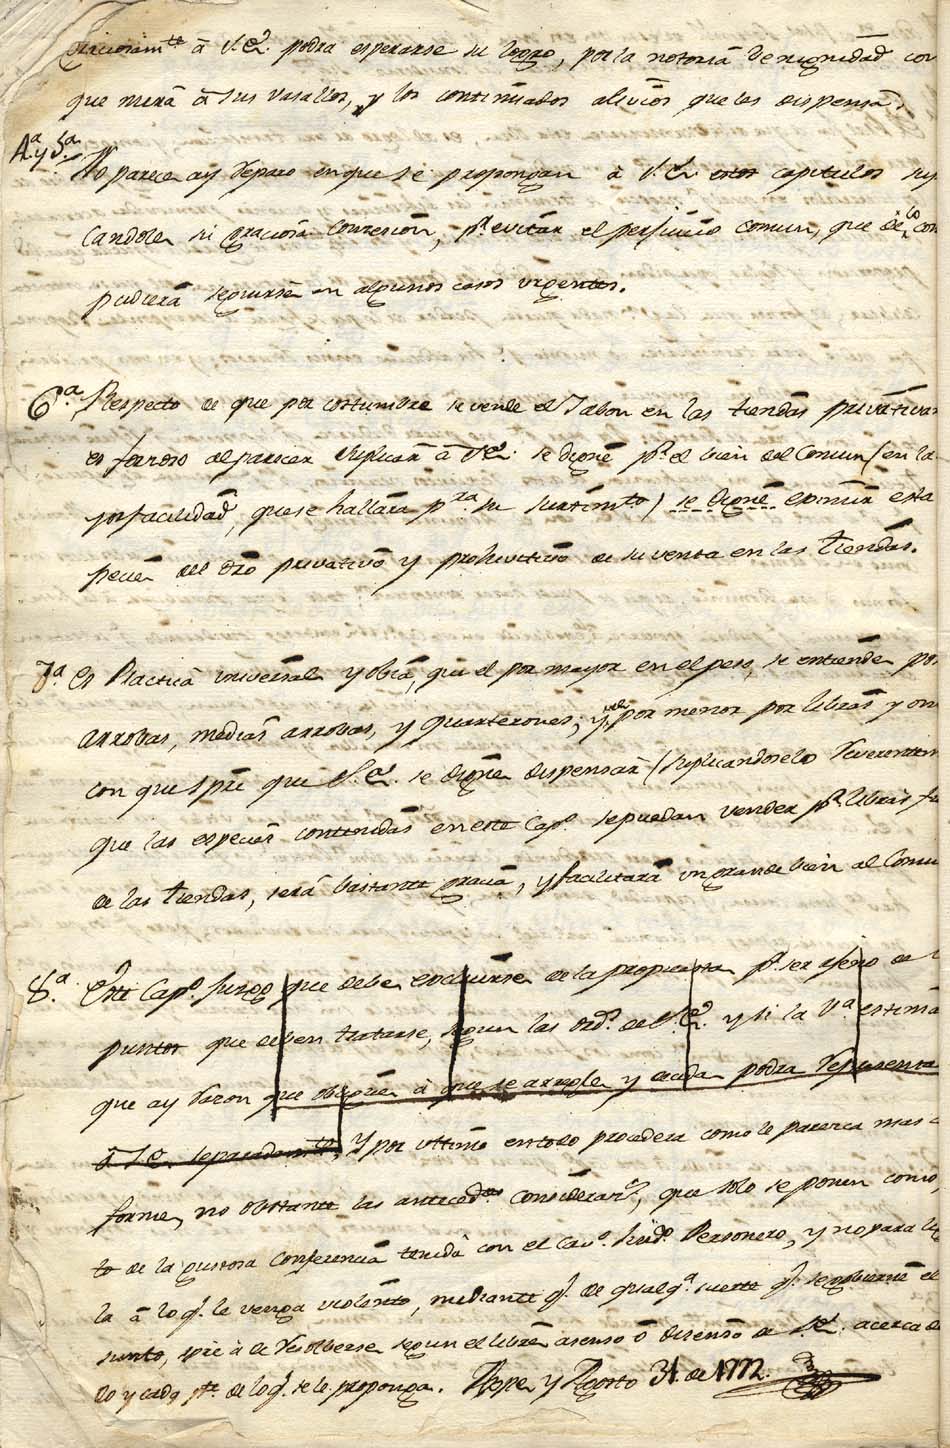 à S.E. podra esperarse su logro, por la notoria venignidad con
que mira à sus vasallos, y los continuados alivios que les dispensa.
4.ª y 5.ª
No parece ay reparo en que se propongan à S.E. estos capitulos sup
candole su graciosa concesion, p.r evitar el perjuicio comun, que de lo con
pudiera seguirse en algunos casos urgentes.
6.ª Respecto de que por costumbre se vende el Jabon en las tiendas privativas
es forzoso al parecer suplicar à S.E. se digne p.r el bien del Comun (en la
yor facilidad, que se hallara p.ra su surtim.to) se digne eximir esta
pecie del dro privativo y prohivitivo de su venta en las tiendas.
7.ª Es Practica universal y obia, que el por mayor en el peso, se entiende por
arrobas, medias arrobas, y quarterones; y el por menor por libras y on
con que spre que S.E. se digne dispensar (suplicandoselo reverentem
que las especies contenidas en este Cap.o se puedan vender p.r libras fu
de las tiendas, será bastante gracia, y facilitará un grande bien al Comu
8.ª Este Cap.o juzgo que debe excluirse de la propuesta p.r ser ageno de l
puntos que deben tratarse, segun las ord.s de S.E. y si la V.ª estima
que ay razon que obligue à que se arregle y ceda podra representa
à S.E. separadam.te, Y por ultimo en todo procedera como le parezca mas c
forme, no obstante las anteced.tes consideracio.s, que solo se ponen como
to de la gustosa conferencia tenida con el Cav.o Sind.o Personero, y no para li
la à lo q.e le venga violento, mediante q.e de qualq.a suerte q.e se gobierne el
sunto, spre à de resolverse segun el libre asenso ò disenso de S.E. acerca de
lo y cada p.te de lo q.e se le proponga. Yepes y Agosto 31. de 1772.